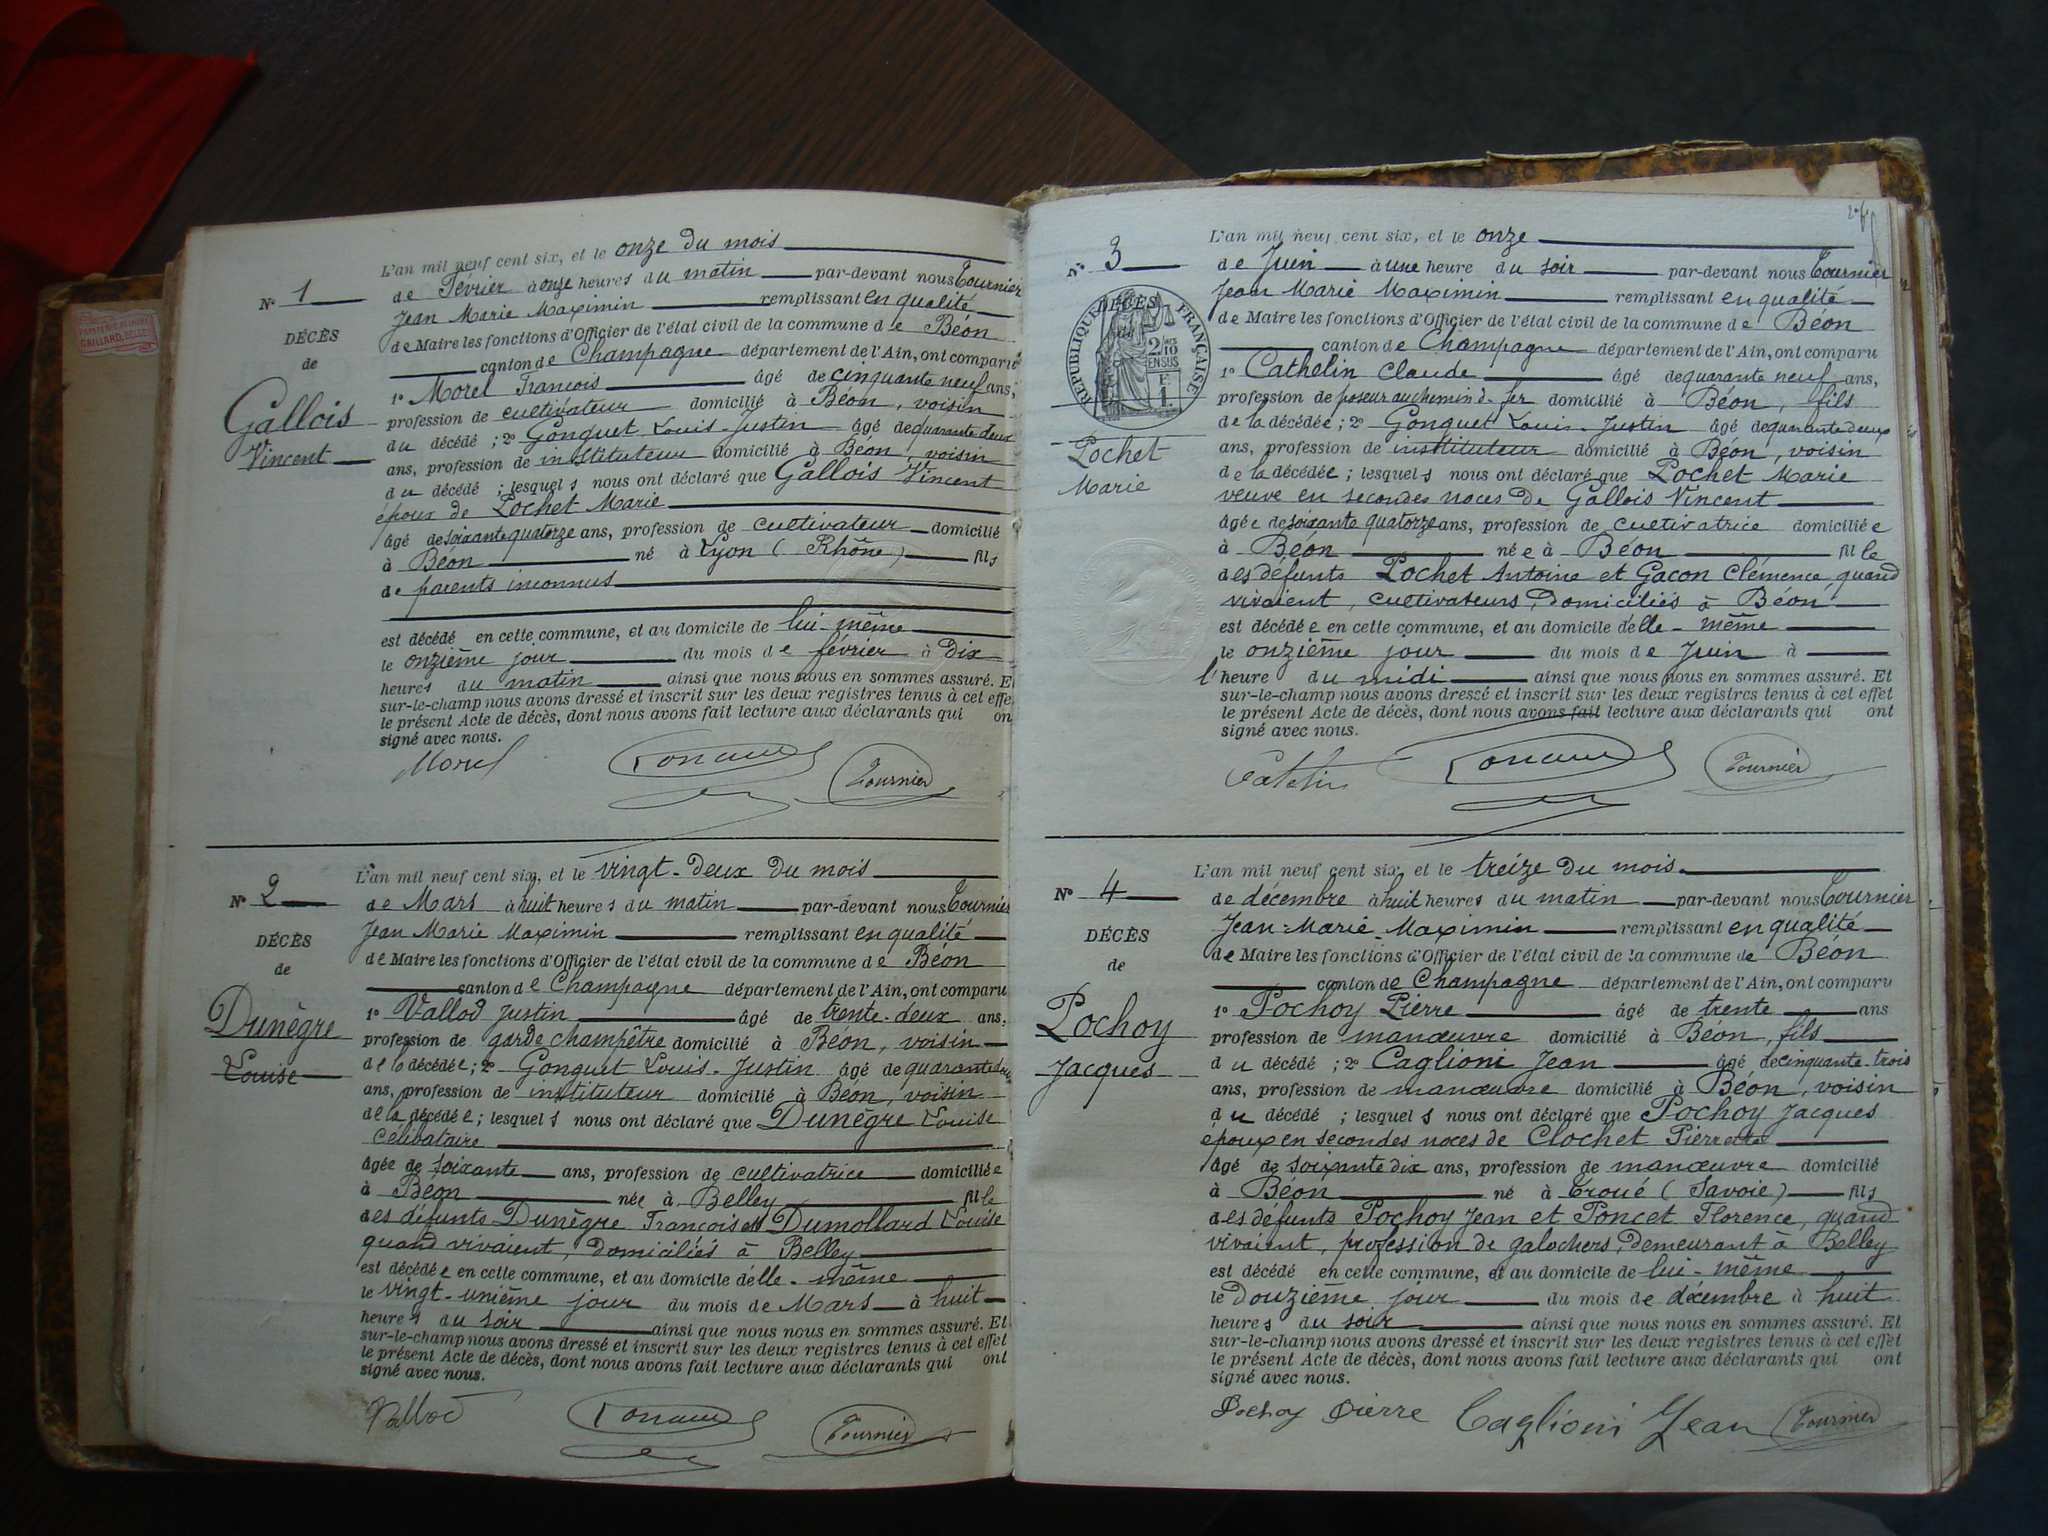 L'an mil neuf cent six, et le onze du mois
de Février à onze heures du matin par-devant nous Tournier
Jean Marie Maximin remplissant en qualité
de Maire les fonctions d'Officier de l'état civil de la commune de Béon
canton de Champagne département de l'Ain, ont comparu
1º Morel François âgé de cinquante neuf ans,
profession de cultivateur domicilié à Béon, voisin
du décédé ; 2º Gonguet Louis-Justin âgé de quarante deux
ans, profession de instituteur domicilié à Béon, voisin
du décédé ; lesquels nous ont déclaré que Gallois Vincent
époux de Lochet Marie
âgé de soixante quatorze ans, profession de cultivateur domicilié
à Béon né à Lyon (Rhône) fils
de parents inconnus
est décédé en cette commune, et au domicile de lui-même
le onzième jour du mois de février à dix
heures du matin ainsi que nous nous en sommes assuré. Et
sur-le-champ nous avons dressé et inscrit sur les deux registres tenus à cet effe
le présent Acte de décès, dont nous avons fait lecture aux déclarants qui on
signé avec nous.
Nº 1
DÉCÈS
de
Gallois
Vincent
Morel Tournier
L'an mil neuf cent six, et le vingt-deux du mois
de Mars à huit heures du matin par-devant nous Tournier
Jean Marie Maximin remplissant en qualité
de Maire les fonctions d'Officier de l'état civil de la commune de Béon
canton de Champagne département de l'Ain, ont comparu
1º Vallod Justin âgé de trente-deux ans,
profession de garde champêtre domicilié à Béon, voisin
de la décédée ; 2º Gonguet Louis-Justin âgé de quarante deux
ans, profession de instituteur domicilié à Béon, voisin
de la décédée ; lesquels nous ont déclaré que Dunègre Louise
célibataire
âgée de soixante ans, profession de cultivatrice domiciliée
à Béon née à Belley fille
des défunts Dunègre François et Dumollard Louise
quand vivaient, domiciliés à Belley
est décédée en cette commune, et au domicile d'elle-même
le vingt-unième jour du mois de Mars à huit
heures du soir ainsi que nous nous en sommes assuré. Et
sur-le-champ nous avons dressé et inscrit sur les deux registres tenus à cet effet
le présent Acte de décès, dont nous avons fait lecture aux déclarants qui ont
signé avec nous.
Nº 2
DÉCÈS
de
Dunègre
Louise
Vallod Tournier
L'an mil neuf cent six, et le onze
de Juin à une heure du soir par-devant nous Tournier
Jean Marie Maximin remplissant en qualité
de Maire les fonctions d'Officier de l'état civil de la commune de Béon
canton de Champagne département de l'Ain, ont comparu
1º Cathelin Claude âgé de quarante neuf ans,
profession de poseur au chemin d. fer domicilié à Béon, fils
de la décédée ; 2º Gonguet Louis-Justin âgé de quarante deux
ans, profession de instituteur domicilié à Béon, voisin
de la décédée ; lesquels nous ont déclaré que Lochet Marie
veuve en secondes noces de Gallois Vincent
âgée de soixante quatorze ans, profession de cultivatrice domiciliée
à Béon née à Béon fille
des défunts Lochet Antoine et Gacon Clémence, quand
vivaient, cultivateurs, domiciliés à Béon
est décédée en cette commune, et au domicile d'elle-même
le onzième jour du mois de Juin à
l'heure du midi ainsi que nous nous en sommes assuré. Et
sur-le-champ nous avons dressé et inscrit sur les deux registres tenus à cet effet
le présent Acte de décès, dont nous avons fait lecture aux déclarants qui ont
signé avec nous.
Nº 3
DÉCÈS
RÉPUBLIQUE FRANÇAISE
Lochet
Marie
Tournier
L'an mil neuf cent six, et le treize du mois
de décembre à huit heures du matin par-devant nous Tournier
Jean-Marie Maximin remplissant en qualité
de Maire les fonctions d'Officier de l'état civil de la commune de Béon
canton de Champagne département de l'Ain, ont comparu
1º Pochoy Pierre âgé de trente ans
profession de manœuvre domicilié à Béon, fils
du décédé ; 2º Caglioni Jean âgé de cinquante-trois
ans, profession de manœuvre domicilié à Béon, voisin
du décédé ; lesquels nous ont déclaré que Pochoy Jacques
époux en secondes noces de Clochet Pierrette
âgé de soixante dix ans, profession de manœuvre domicilié
à Béon né à Troué (Savoie) fils
des défunts Pochoy Jean et Poncet Florence, quand
vivaient, profession de galochers, demeurant à Belley
est décédé en cette commune, et au domicile de lui-même
le douzième jour du mois de décembre à huit
heures du soir ainsi que nous nous en sommes assuré. Et
sur-le-champ nous avons dressé et inscrit sur les deux registres tenus à cet effet
le présent Acte de décès, dont nous avons fait lecture aux déclarants qui ont
signé avec nous.
Nº 4
DÉCÈS
de
Pochoy
Jacques
Pochoy Pierre Caglioni Jean Tournier